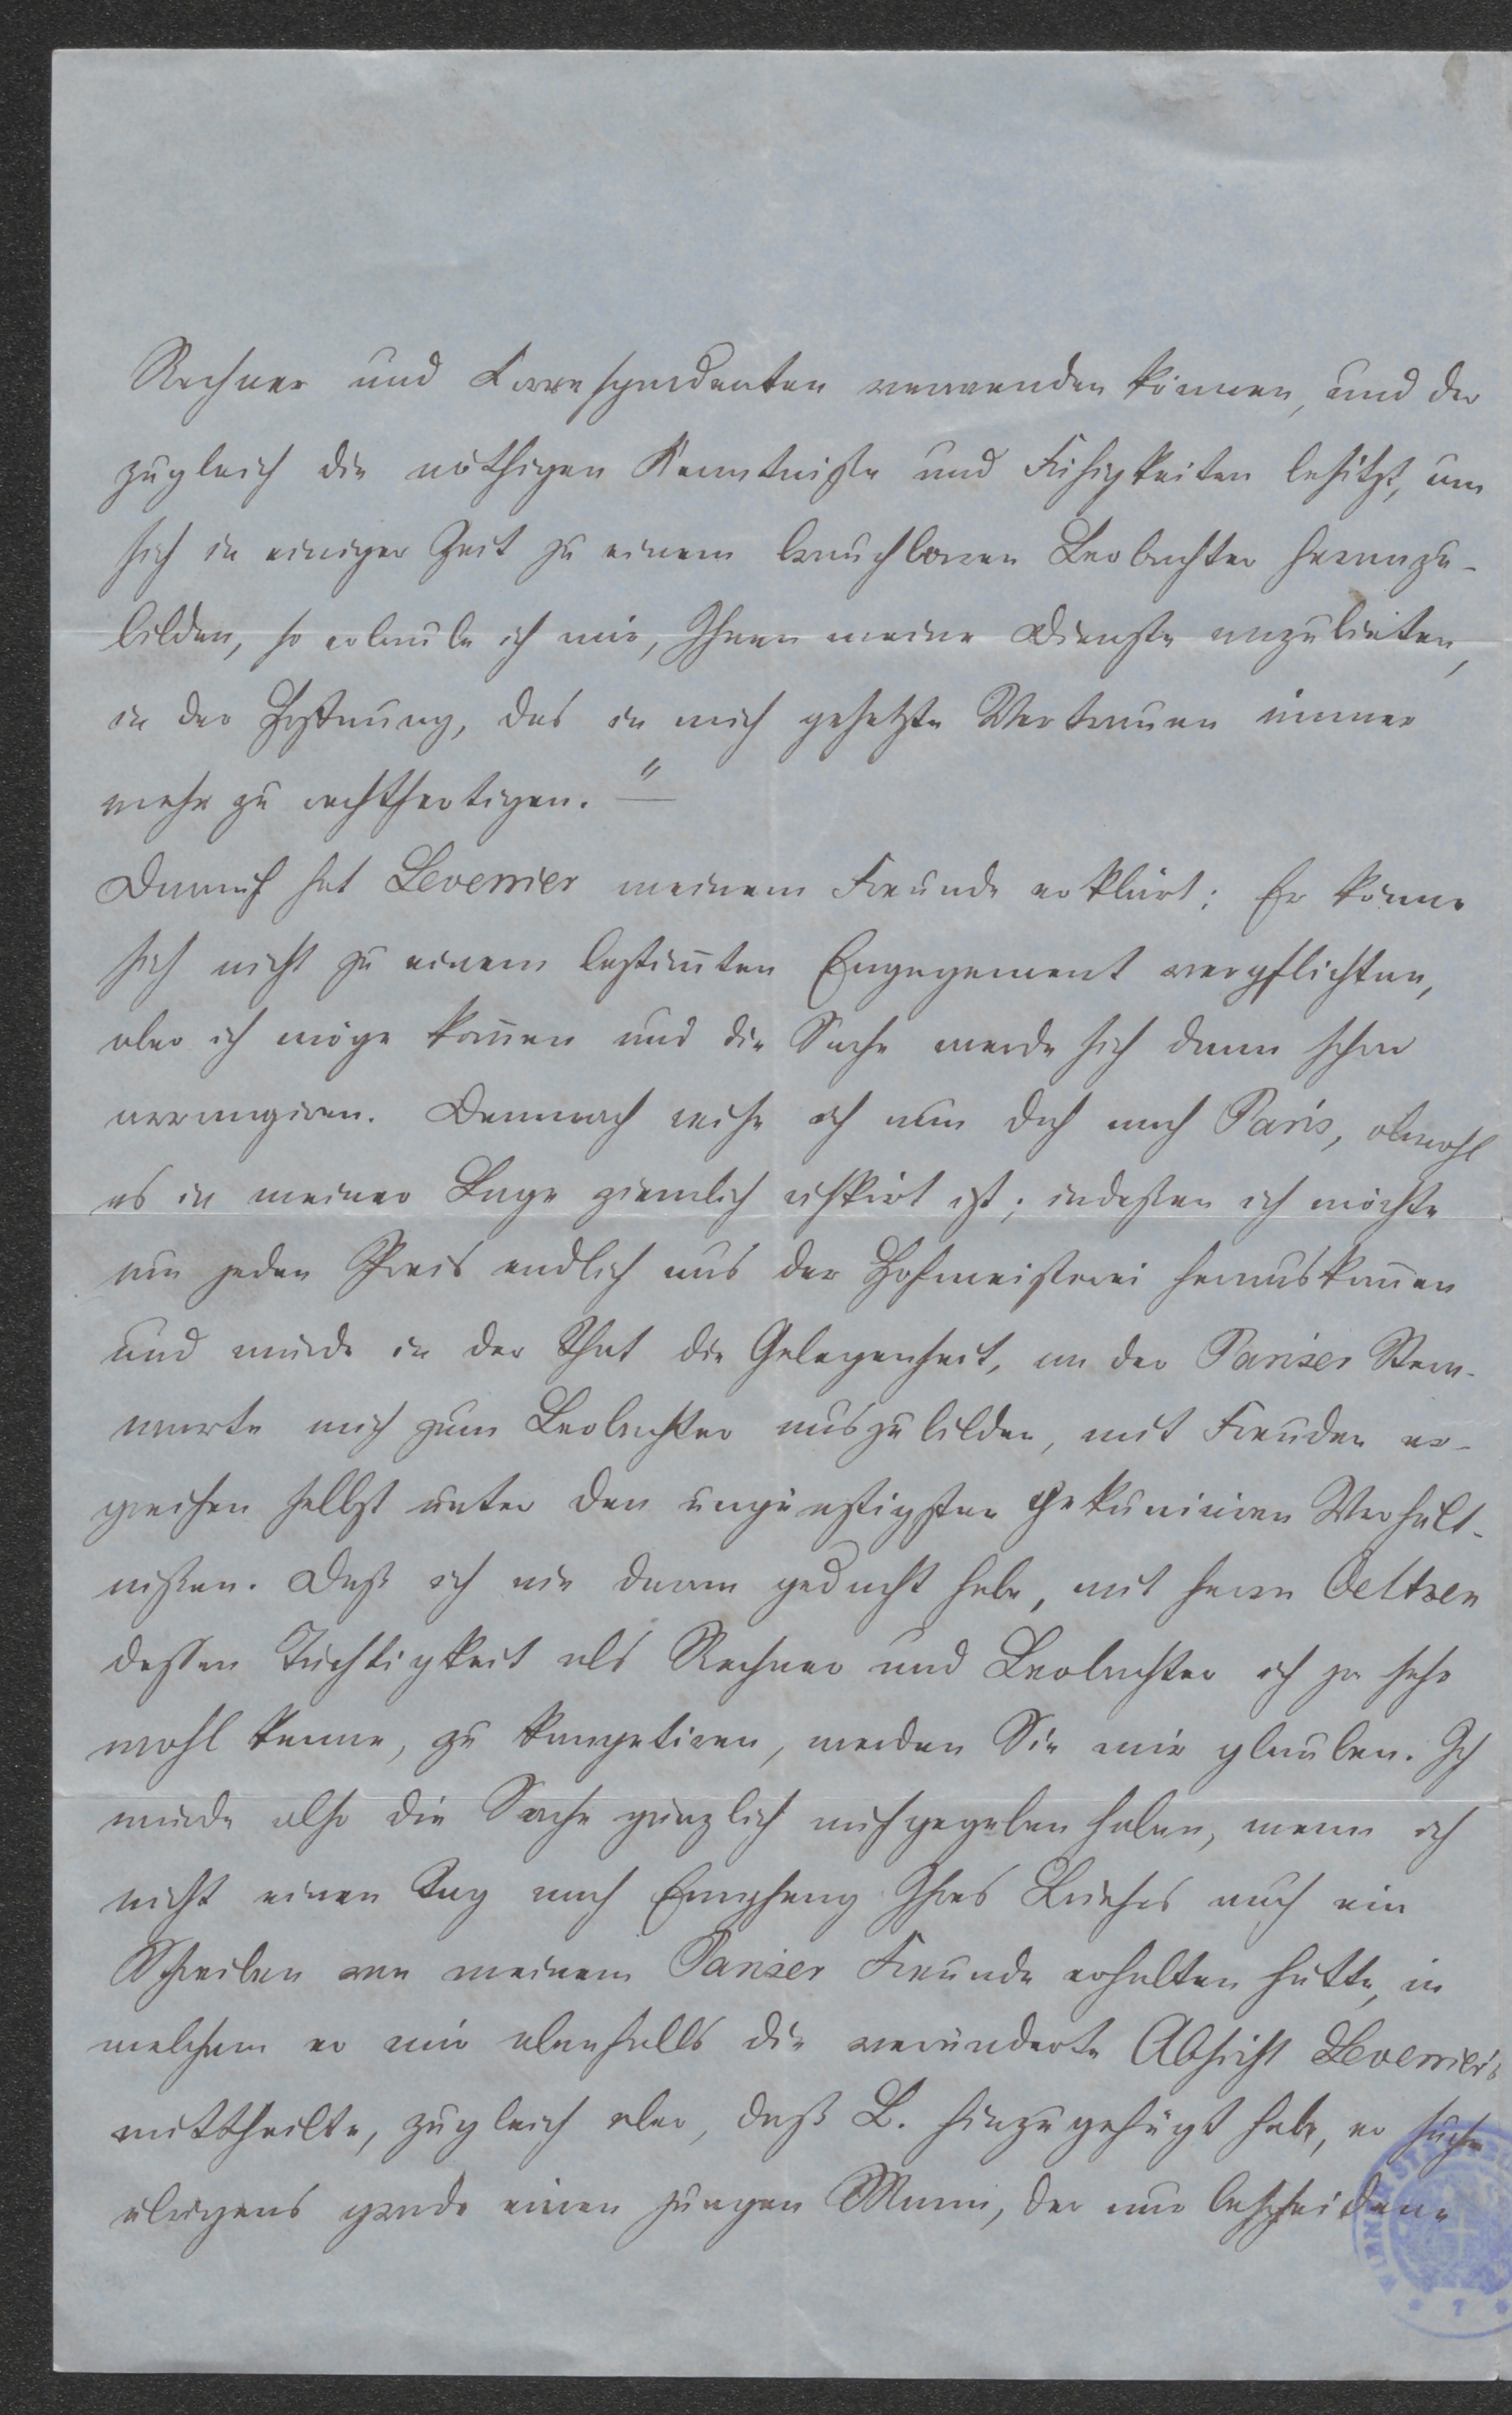 Rechner und Correspondenten verwenden können, und der
zugleich die nöthigen Kenntniße und Fähigkeiten besitzt, um
sich in einiger Zeit zu einem brauchbaren Beobachter heranzu-
bilden, so erlaube ich mir, Ihnen meine Dienste anzubieten,
in der Hoffnung, das in mich gesetzte Vertrauen immer
mehr zu rechtfertigen. "—
Darauf hat Leverrier meinem Freunde erklärt: Er könne
sich nicht zu einem bestim̅ten Engagement verpflichten,
aber ich möge kom̅en und die Sache werde sich dann schon
arrangiren. Demnach reise ich nun doch nach Paris, obwohl
es in meiner Lage ziemlich riskirt ist; indeßen ich möchte
um jeden Preis endlich aus der Hofmeisterei herauskom̅en
und würde in der That die Gelegenheit, an der Pariser Stern-
warte mich zum Beobachter auszubilden, mit Freuden er-
greifen selbst unter den ungünstigsten pekuniären Verhält-
nißen. Daß ich nie daran gedacht habe, mit Herrn Oeltzen
dessen Tüchtigkeit als Rechner und Beobachter ich ja sehr
wohl kenne, zu kompetiren, werden Sie mir glauben. Ich
würde also die Sache gänzlich aufgegeben haben, wenn ich
nicht einen Tag nach Empfang Ihres Briefes auch ein
Schreiben von meinem Pariser Freunde erhalten hätte, in
welchem er mir ebenfalls die veränderte Absicht Leverrier's
mittheilte, zugleich aber, daß L. hinzugefügt habe, er suche
übrigens grade einen jungen Mann, der nur bescheidene